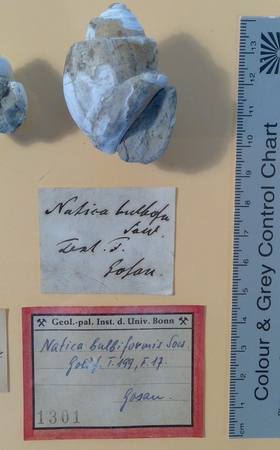 Natica bulbosa
Sow.
Text. F.
Gosau.
⚒ Geol.-pal. Inst. d. Univ. Bonn ⚒
Natica bulbiformis Sow.
Goldf. T. 199, F. 17
Gosau.
1301
Colour & Grey Control Chart
cm 1 2 3 4 5 6 7 8 9 10 11 12 13